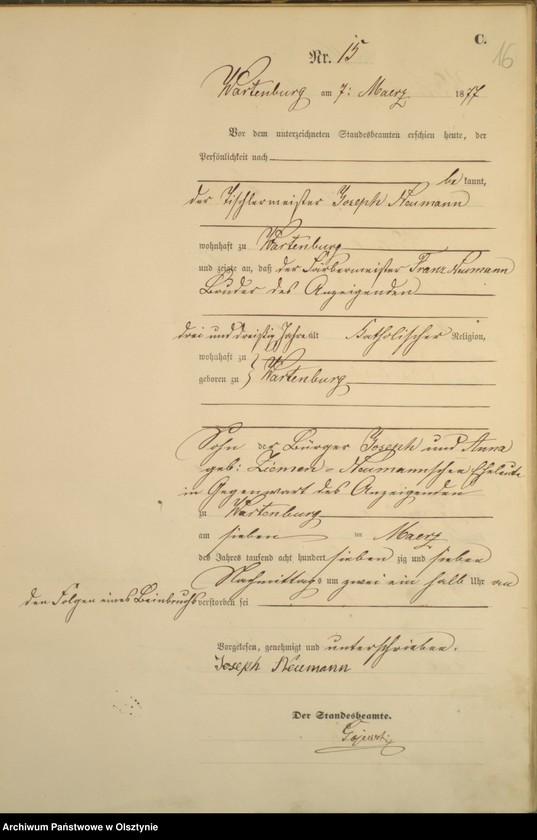 C.
16
Nr. 15
Wartenburg am 7: Maerz 1877
Vor dem unterzeichneten Standesbeamten erschien heute, der
Persönlichkeit nach
bekannt,
der Tischlermeister Joseph Neumann
wohnhaft zu Wartenburg
und zeigte an, daß der Färbermeister Franz Neumann
Bruder des Anzeigenden
drei und dreißig Jahre alt Katholischer Religion,
wohnhaft zu
geboren zu Wartenburg
Sohn der Bürger Joseph und Anna
geb: Neumannschen Eheleute
in Gegenwart des Anzeigenden
zu Wartenburg
am sieben ten Maerz
des Jahres tausend acht hundert siebenzig und sieben
Nachmittags um zwei ein halb Uhr an
den Folgen eines Beinbruchs verstorben sei
Vorgelesen, genehmigt und unterschrieben.
Joseph Neumann
Der Standesbeamte.
Archiwum Państwowe w Olsztynie